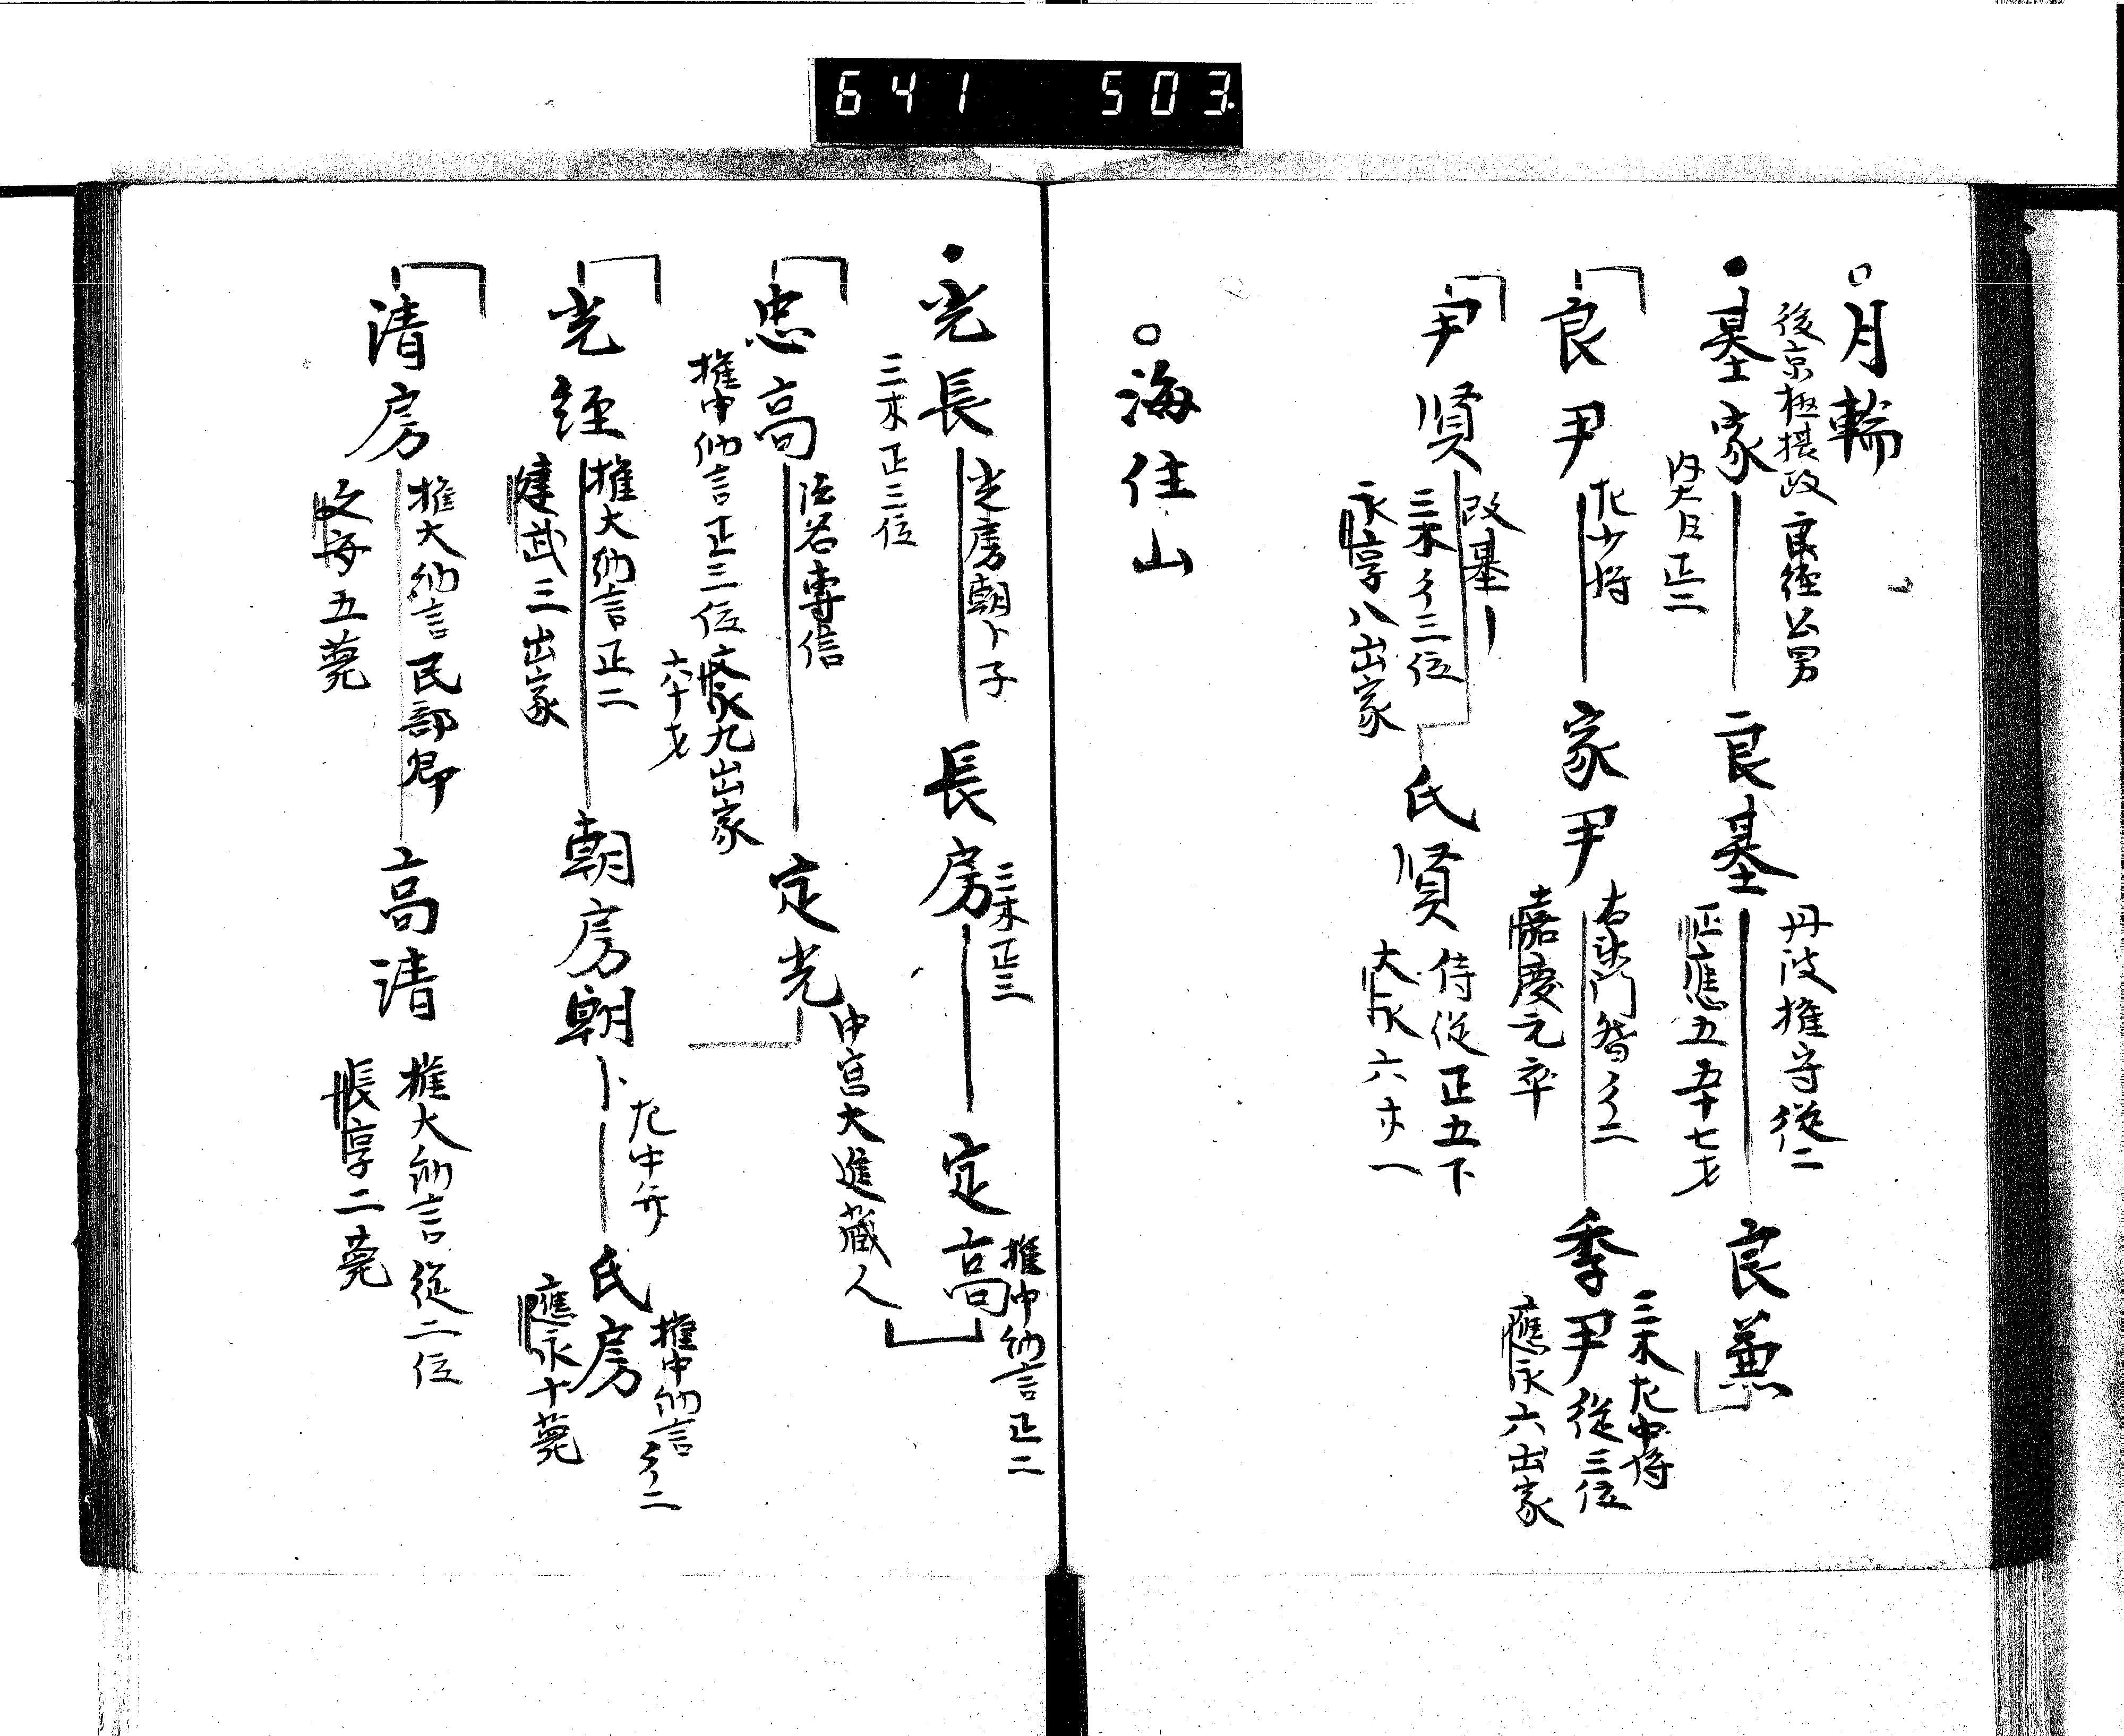 641 503
○月輪
後京極摂政良経公男
基家
内大臣正二
良基
丹波権守従二
正應五 五十七才
良兼
良尹
左少将
家尹
右衛門督従二
嘉慶元卒
季尹
三木左中将
従三位
應永六出家
尹賢
改基一
三木従三位
永享八出家
氏賢
侍従正五下
大永六才一
○海住山
光長
光房朝卜子
三木正三位
長房
三木正三
定高
権中納言正二
忠高
法名専信
権中納言正三位文永九出家
六十才
定光
中宮大進蔵人
光経
権大納言正二
建武三出家
朝房朝卜
左中弁
氏房
権中納言従二
應永十薨
清房
権大納言民部卿
文安五薨
高清
権大納言従二位
長享二薨